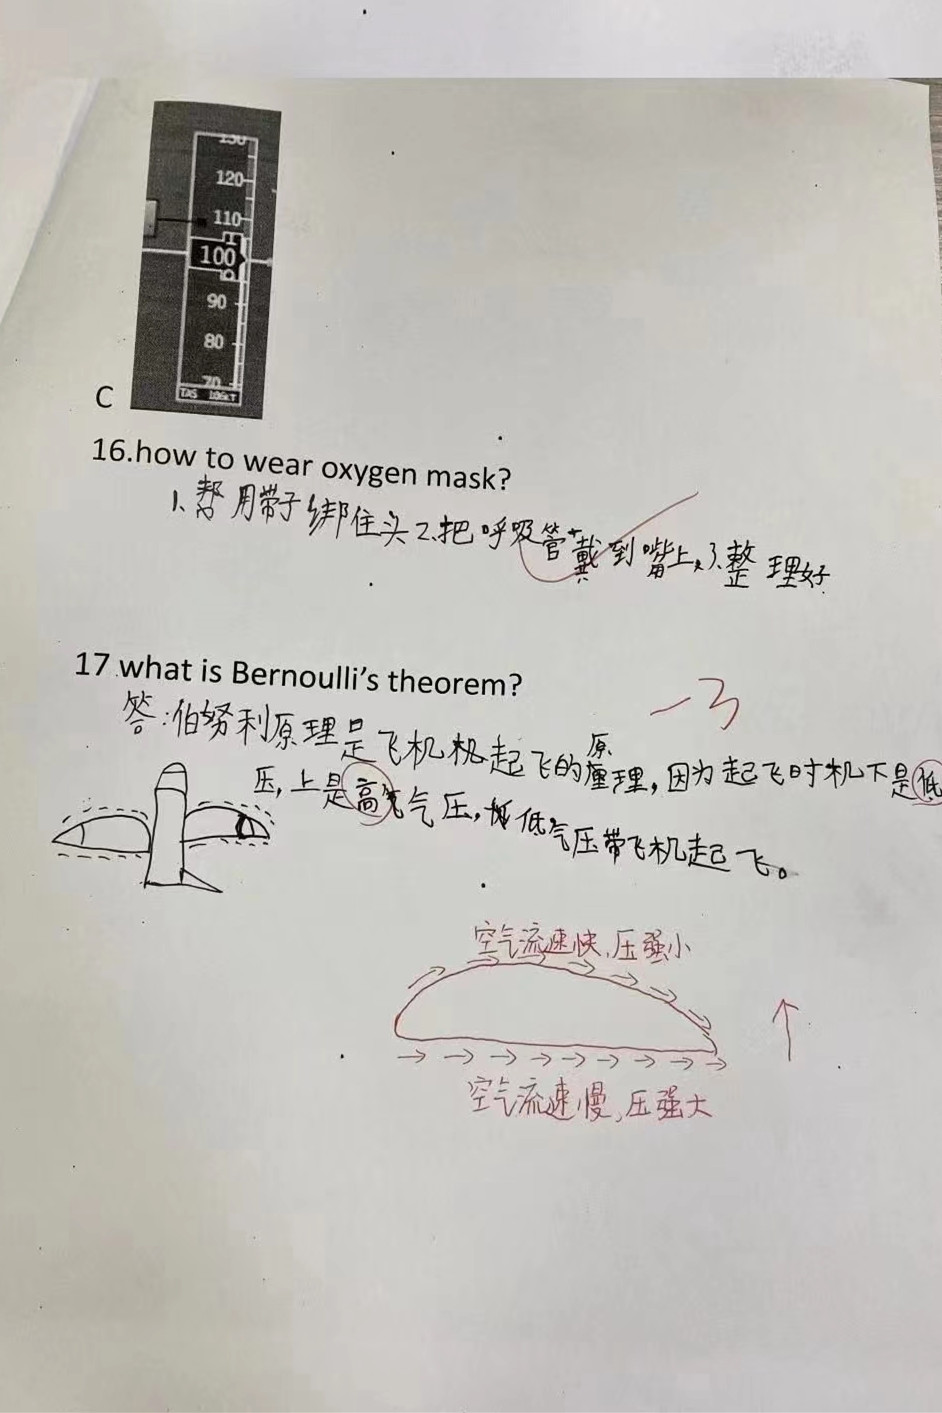 130
120
110
100
90
80
70
TAS 106KT
C
16.how to wear oxygen mask?
1、用带子绑住头2、把呼吸管戴到嘴上,3、整理好
17.what is Bernoulli's theorem?
-3
答:伯努利原理是飞机起飞的原理,因为起飞时机下是低
压,上是高气压,低气压带飞机起飞。
空气流速快,压强小
空气流速慢,压强大